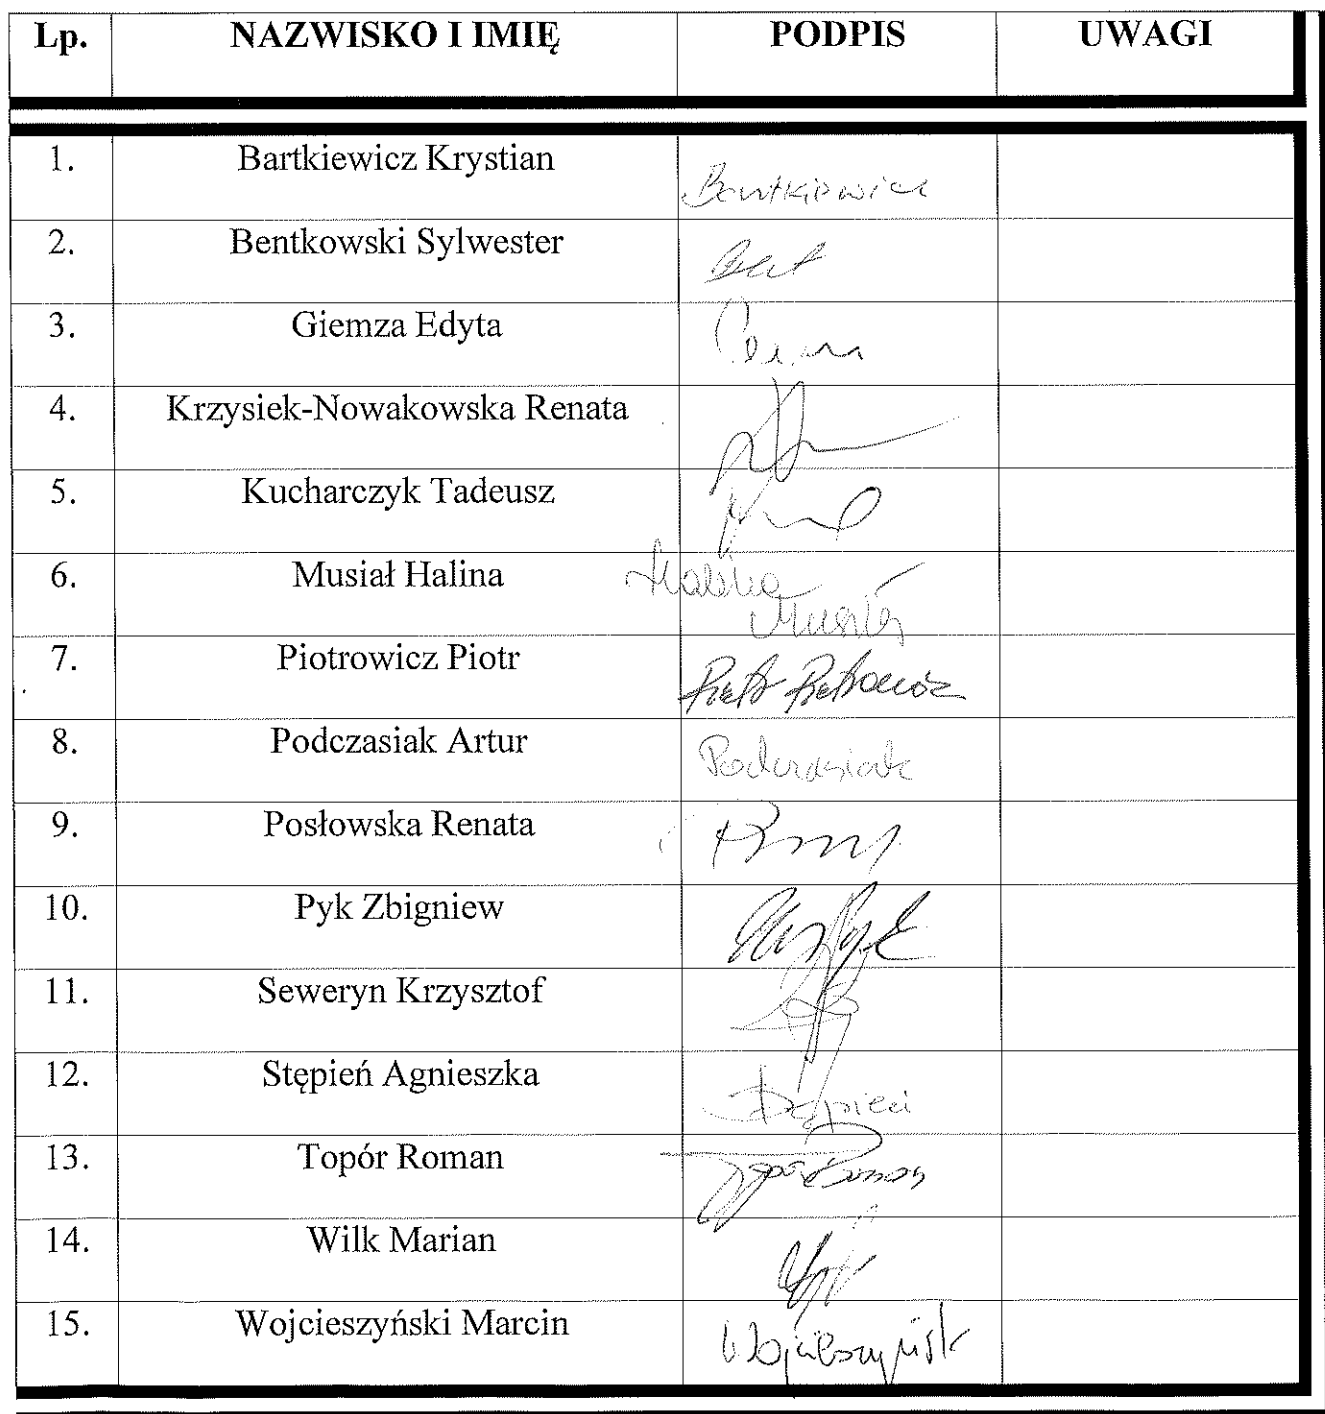 Lp. NAZWISKO I IMIĘ PODPIS UWAGI
1. Bartkiewicz Krystian Bartkiewicz
2. Bentkowski Sylwester
3. Giemza Edyta
4. Krzysiek-Nowakowska Renata
5. Kucharczyk Tadeusz
6. Musiał Halina Halina
Musiał
7. Piotrowicz Piotr Piotr Piotrowicz
8. Podczasiak Artur Podczasiak
9. Posłowska Renata
10. Pyk Zbigniew
11. Seweryn Krzysztof
12. Stępień Agnieszka Stępień
13. Topór Roman Topór Roman
14. Wilk Marian
15. Wojcieszyński Marcin Wojcieszyński